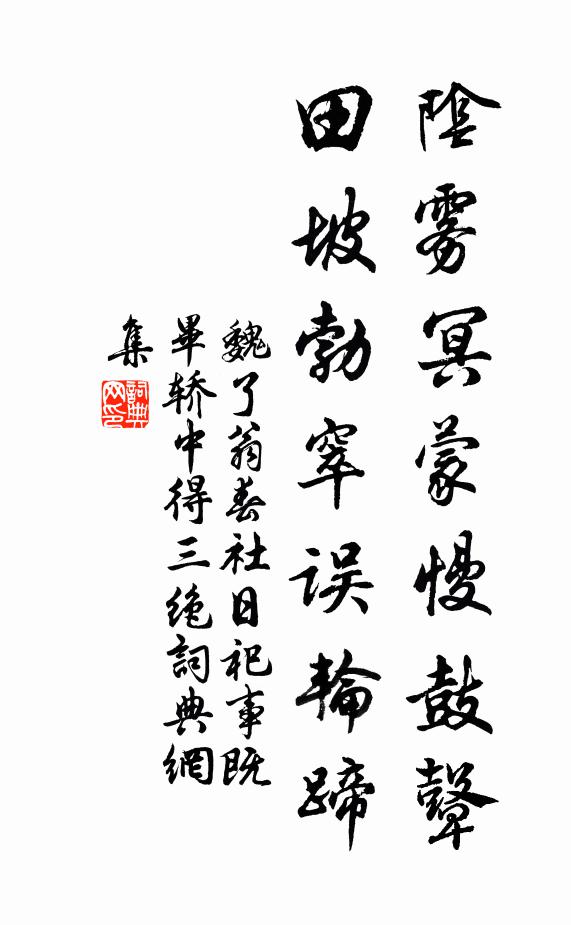 陰雾冥蒙慢鼓鼙
田坡勃窣误輪蹄
魏了翁春社日祀事既
畢轿中得三绝詞典網
集
詞典
网印